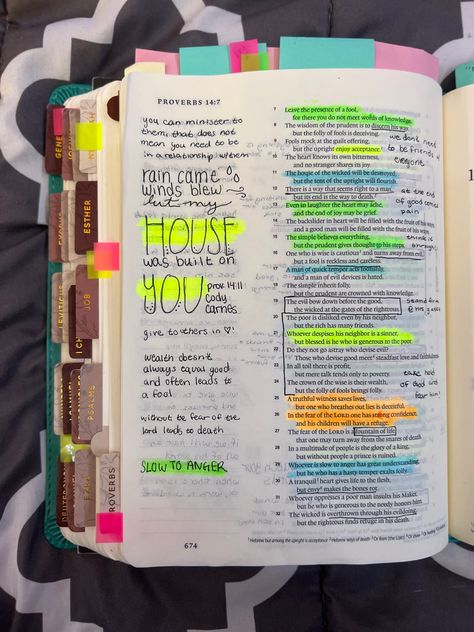 PROVERBS 14:7
you can minister to
them, that does not
mean you need to be
in a relationship w them
rain came &
winds blew
but my
HOUSE
was built on
YOU
prov 14:11
cody
carnes
give to others in ♡!
wealth doesn't
always equal good
and often leads to
a fool
without the fear of the
lord leads to death
SLOW TO ANGER
674
7 Leave the presence of a fool,
for there you do not meet words of knowledge.
8 The wisdom of the prudent is to discern his way,
but the folly of fools is deceiving.
9 Fools mock at the guilt offering,
but the upright enjoy acceptance.
10 The heart knows its own bitterness,
and no stranger shares its joy.
11 The house of the wicked will be destroyed,
but the tent of the upright will flourish.
12 There is a way that seems right to a man,
but its end is the way to death.
13 Even in laughter the heart may ache,
and the end of joy may be grief.
14 The backslider in heart will be filled with the fruit of his ways,
and a good man will be filled with the fruit of his ways.
15 The simple believes everything,
but the prudent gives thought to his steps.
16 One who is wise is cautious and turns away from evil,
but a fool is reckless and careless.
17 A man of quick temper acts foolishly,
and a man of evil devices is hated.
18 The simple inherit folly,
but the prudent are crowned with knowledge.
19 The evil bow down before the good,
the wicked at the gates of the righteous.
20 The poor is disliked even by his neighbor,
but the rich has many friends.
21 Whoever despises his neighbor is a sinner,
but blessed is he who is generous to the poor.
22 Do they not go astray who devise evil?
Those who devise good meet steadfast love and faithfulness.
23 In all toil there is profit,
but mere talk tends only to poverty.
24 The crown of the wise is their wealth,
but the folly of fools brings folly.
25 A truthful witness saves lives,
but one who breathes out lies is deceitful.
26 In the fear of the LORD one has strong confidence,
and his children will have a refuge.
27 The fear of the LORD is a fountain of life,
that one may turn away from the snares of death.
28 In a multitude of people is the glory of a king,
but without people a prince is ruined.
29 Whoever is slow to anger has great understanding,
but he who has a hasty temper exalts folly.
30 A tranquil heart gives life to the flesh,
but envy makes the bones rot.
31 Whoever oppresses a poor man insults his Maker,
but he who is generous to the needy honors him.
32 The wicked is overthrown through his evildoing,
but the righteous finds refuge in his death.
we don't need
to be friends w
everyone
at the end
of good comes
pain
take hold
of God and
fear him!
ESTHER
JOB
PSALMS
PROVERBS
EXODUS
LEVITICUS